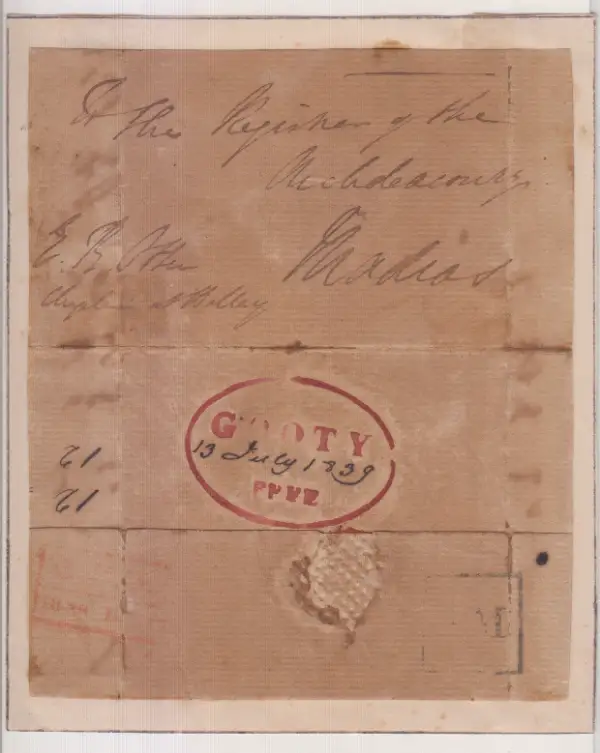 To the Registrar of the
Archdeaconry
Madras
E. R. Otter
Chaplain at Bellary
GOOTY
13 July 1839
FREE
21
21